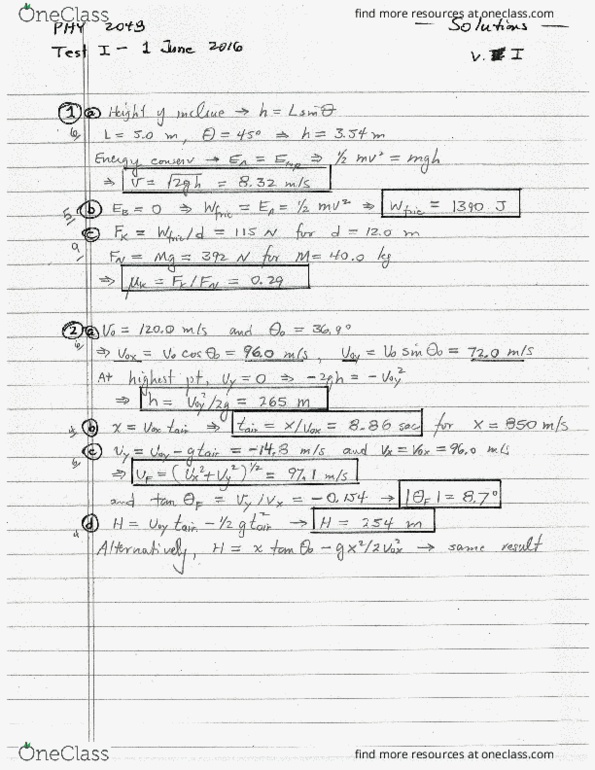 OneClass
find more resources at oneclass.com
PHY 2049 — Solutions —
Test I - 1 June 2016
v. I
① ⓐ Height of incline → h = L sin θ
L = 5.0 m, θ = 45° ⇒ h = 3.54 m
Energy conserv → E_A = E_top ⇒ ½ mv² = mgh
⇒ v = √2gh = 8.32 m/s
ⓑ E_B = 0 ⇒ W_fric = E_A = ½ mv² ⇒ W_fric = 1390 J
ⓒ F_K = W_fric/d = 115 N for d = 12.0 m
F_N = Mg = 392 N for M = 40.0 kg
⇒ μ_K = F_K/F_N = 0.29
② ⓐ v₀ = 120.0 m/s and θ₀ = 36.9°
⇒ v₀x = v₀ cos θ₀ = 96.0 m/s, v₀y = v₀ sin θ₀ = 72.0 m/s
At highest pt, v_y = 0 ⇒ -2gh = -v₀y²
⇒ h = v₀y²/2g = 265 m
ⓑ x = v₀x t_air ⇒ t_air = x/v₀x = 8.86 sec for x = 850 m/s
ⓒ v_y = v₀y - g t_air = -14.8 m/s and v_x = v₀x = 96.0 m/s
⇒ v_F = (v_x² + v_y²)^1/2 = 97.1 m/s
and tan θ_F = v_y/v_x = -0.154 → |θ_F| = 8.7°
ⓓ H = v₀y t_air - ½ g t²_air → H = 254 m
Alternatively, H = x tan θ₀ - gx²/2v₀x² → same result
OneClass
find more resources at oneclass.com